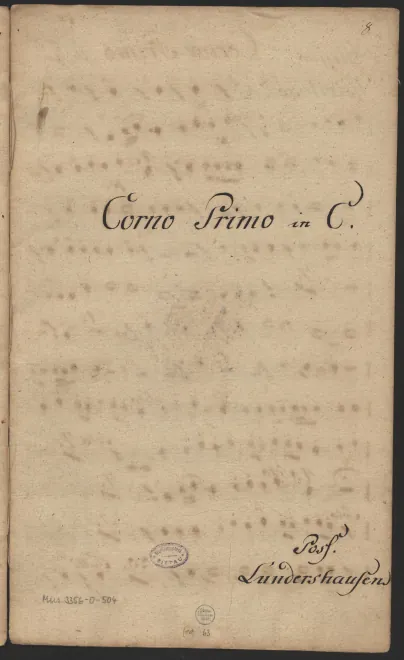 8
Corno Primo in C.
Poss.
Lundershausen
Mus. 1356-O-504